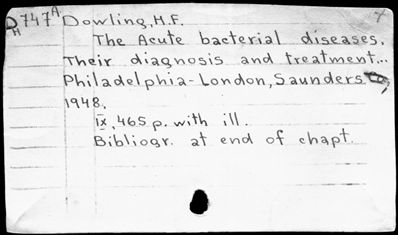 DH747A Dowling, H.F.
The Acute bacterial diseases.
Their diagnosis and treatment...
Philadelphia-London, Saunders
1948.
IX, 465 p. with ill.
Bibliogr. at end of chapt.